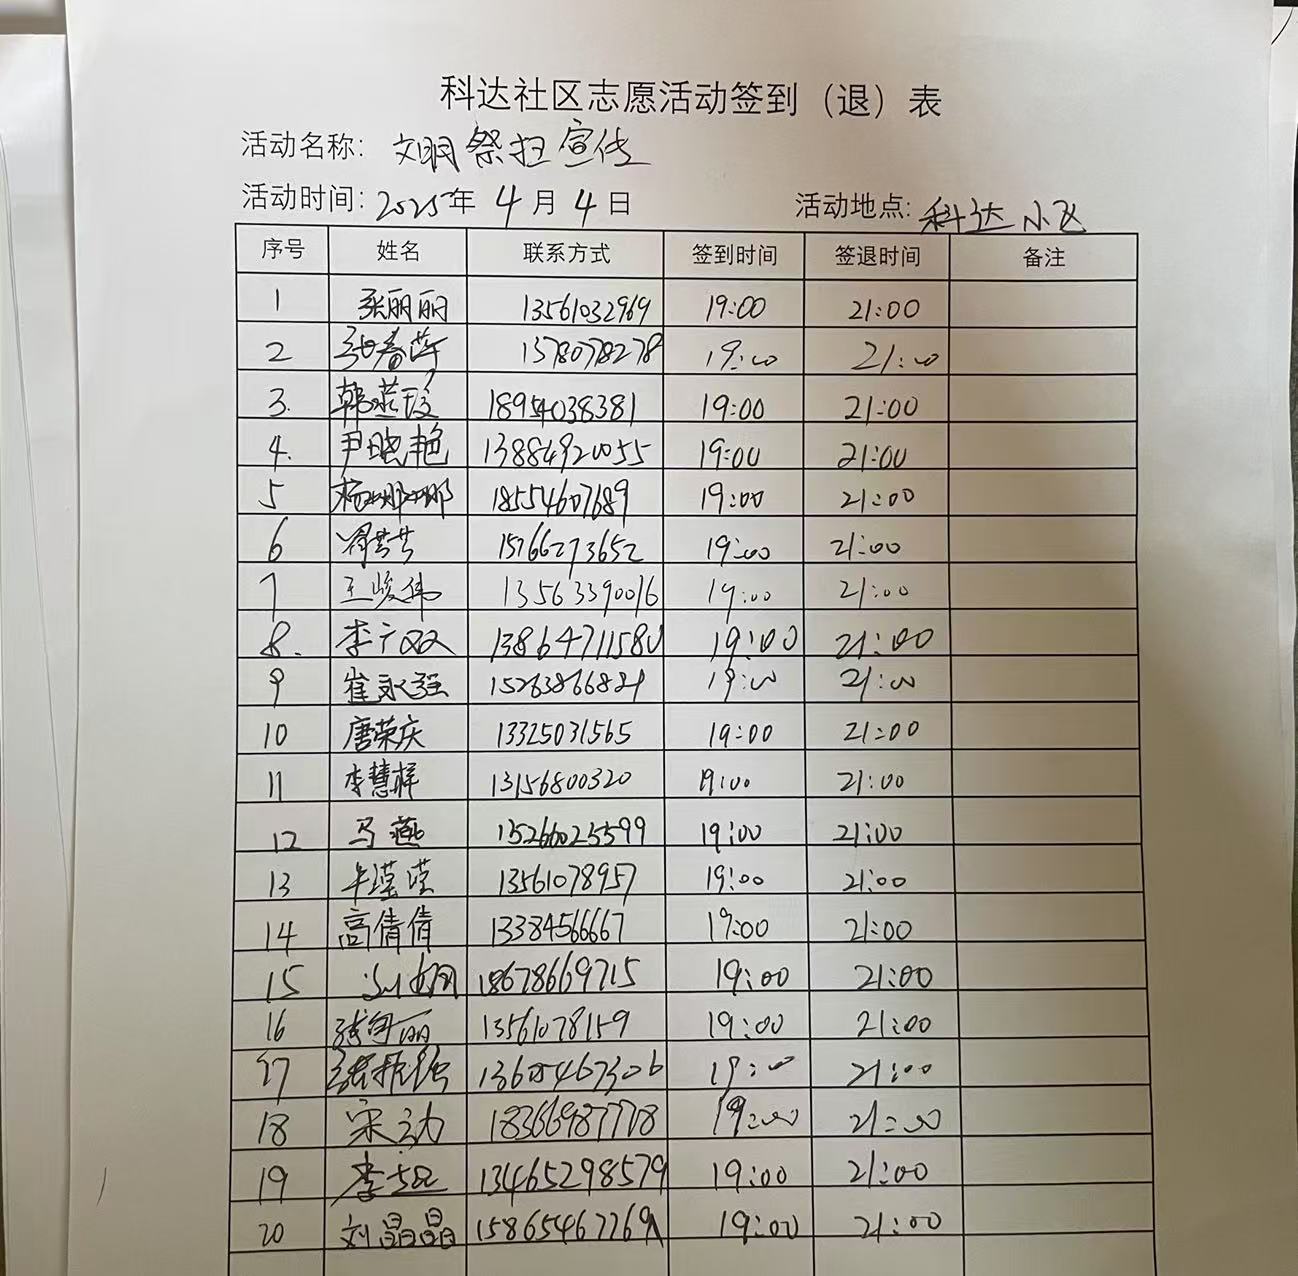 科达社区志愿活动签到（退）表
活动名称: 文明祭扫宣传
活动时间: 2025年 4月 4日 活动地点: 科达小区
序号 姓名 联系方式 签到时间 签退时间 备注
1 张丽丽 13561032969 19:00 21:00
2 张春萍 13780778278 19:00 21:00
3. 韩燕 18954038381 19:00 21:00
4. 尹晓艳 13884920055 19:00 21:00
5 杨娜娜 18554607689 19:00 21:00
6 15766273652 19:00 21:00
7 王峻伟 13563390016 19:00 21:00
8. 李广双 13864711580 19:00 21:00
9 崔永强 15263866821 19:00 21:00
10 唐荣庆 13325031565 19:00 21:00
11 李慧梓 13156800320 19:00 21:00
12 马燕 15266025599 19:00 21:00
13 牟滢滢 13561078957 19:00 21:00
14 高倩倩 13384566667 19:00 21:00
15 18678669715 19:00 21:00
16 丽 13561078159 19:00 21:00
17 张 13605467306 19:00 21:00
18 宋 18366987778 19:00 21:00
19 李超 13465298579 19:00 21:00
20 刘晶晶 1586546726 19:00 21:00